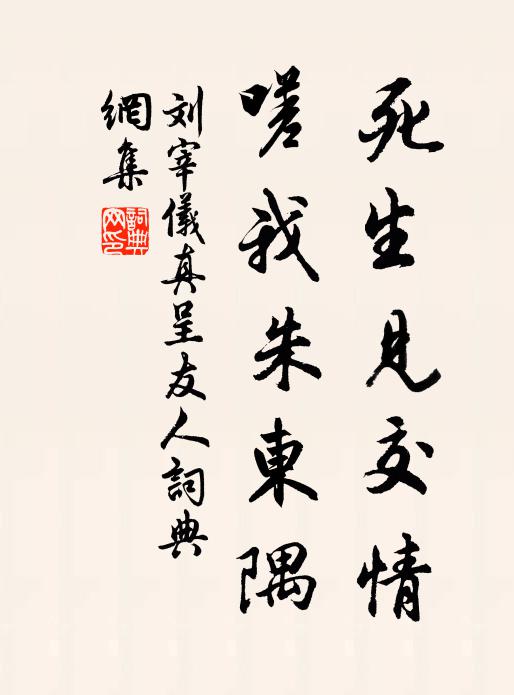 死生見交情
嗟我朱東隅
刘宰儀真呈友人詞典
網集
詞典网印